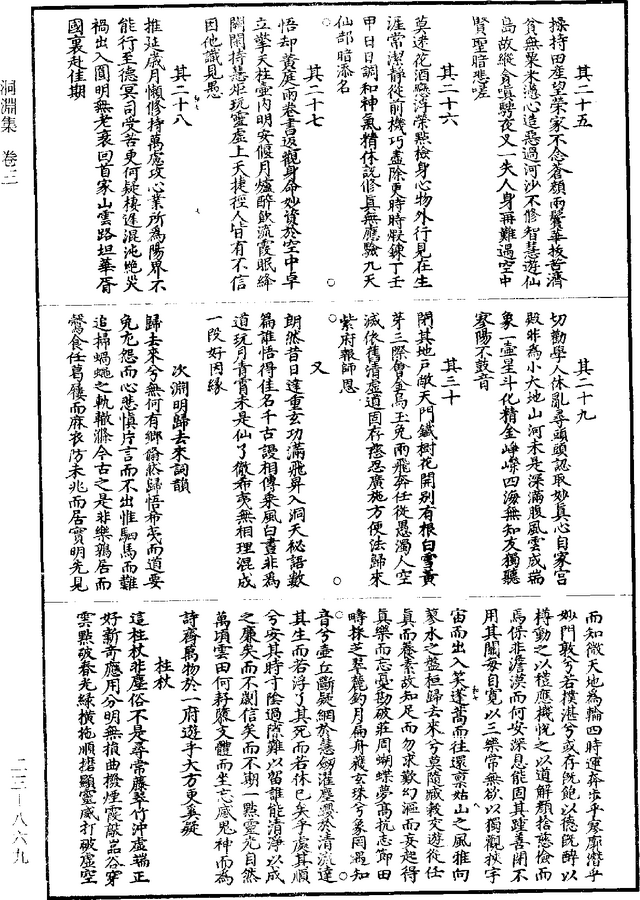 洞淵集　卷三
其二十五
操持田產望榮家不念蒼顏兩鬢華拔苦濟
貧無粟米造心造惡過河沙不修智慧遊仙
島故縱貪嗔騁夜叉一失人身再難遇空中
賢聖暗悲嗟
其二十六
莫迷花酒戀浮榮點檢身心物外行見在生
涯常潔靜從前機巧盡除更時時煅鍊丁壬
甲日日調和神氣精休說修真無應驗九天
仙部暗添名
其二十七
悟却黃庭兩卷書返觀身命妙資於空中卓
立擎天柱壺內明安偃月爐醉飲流霞眠絳
闕閑持慧炬玩靈虛上天捷徑人皆有不信
因他識見愚
其二十八
推延歲月懶修持萬處攻心業所為陽界不
能行至德冥司受苦更何疑棲遲混沌絕災
禍出入圓明無老衰回首家山雲路坦華胥
國裏赴佳期
其二十九
切勸學人休亂尋頭頭認取妙真心自家宮
殿非為小大地山河未是深滿腹風雲成瑞
象一壺星斗化精金崢嶸四海無知友獨聽
寥陽不鼓音
其三十
閉其地戶敞天門鐵樹花開別有根白雪黃
芽三際會金烏玉兔兩飛奔任從愚濁人空
滅依舊清虛道固存慈忍廣施方便法歸來
紫府報師恩
又
朗然昔日達重玄功滿飛昇入洞天秘語數
篇誰悟得佳名千古謾相傳乘風白晝非為
道玩月青霄未是仙了徹希夷無相理混成
一段好因緣
次淵明歸去來詞韻
歸去來兮無何有鄉翛然歸悟希夷而道要
免尤怨而心悲慎片言而不出惟駟馬而難
追掃蝸蠅之軌轍滌今古之是非樂鶉居而
鷇食任葛屨而麻衣防未兆而居實明先見
而知微天地為輪四時運奔步乎寥廓潛乎
妙門敦兮若樸湛兮或存既飽以德既醉以
樽動之以禮應機悅之以道解顏捨慈儉而
焉保非澹漠而何安深息能固其踵善閉不
用其關每自寬以三樂常無欲以獨觀挾宇
宙而出入笑蓬蒿而往還稟姑山之風雅向
蓼水之盤桓歸去來兮莫隨臧穀交遊從任
真而養素故知足而勿求歎幻漚而妄起得
真樂而忘憂勘破莊周蝴蝶夢高抗志節田
疇採芝翠麓釣月扁舟獲玄珠兮象罔遇知
音兮壺丘斷疑網於慧劍濯塵纓於清流達
其生而若浮了其死而若休已矣乎處其順
兮安其時寸陰過隙難以留誰能清淨以成
之廉矣而不劌信矣而不期一點靈光自然
萬頃雲田何耔屏文體而坐忘感鬼神而為
詩齊萬物於一府遊乎大方更奚疑
柱杖
這柱杖非塵俗不是尋常藤翠竹沖虛端正
好新奇應用分明無損曲撥煙霞敲品谷穿
雲點破春光綠橫拖順撦顯靈威打破虛空
二三—八六九